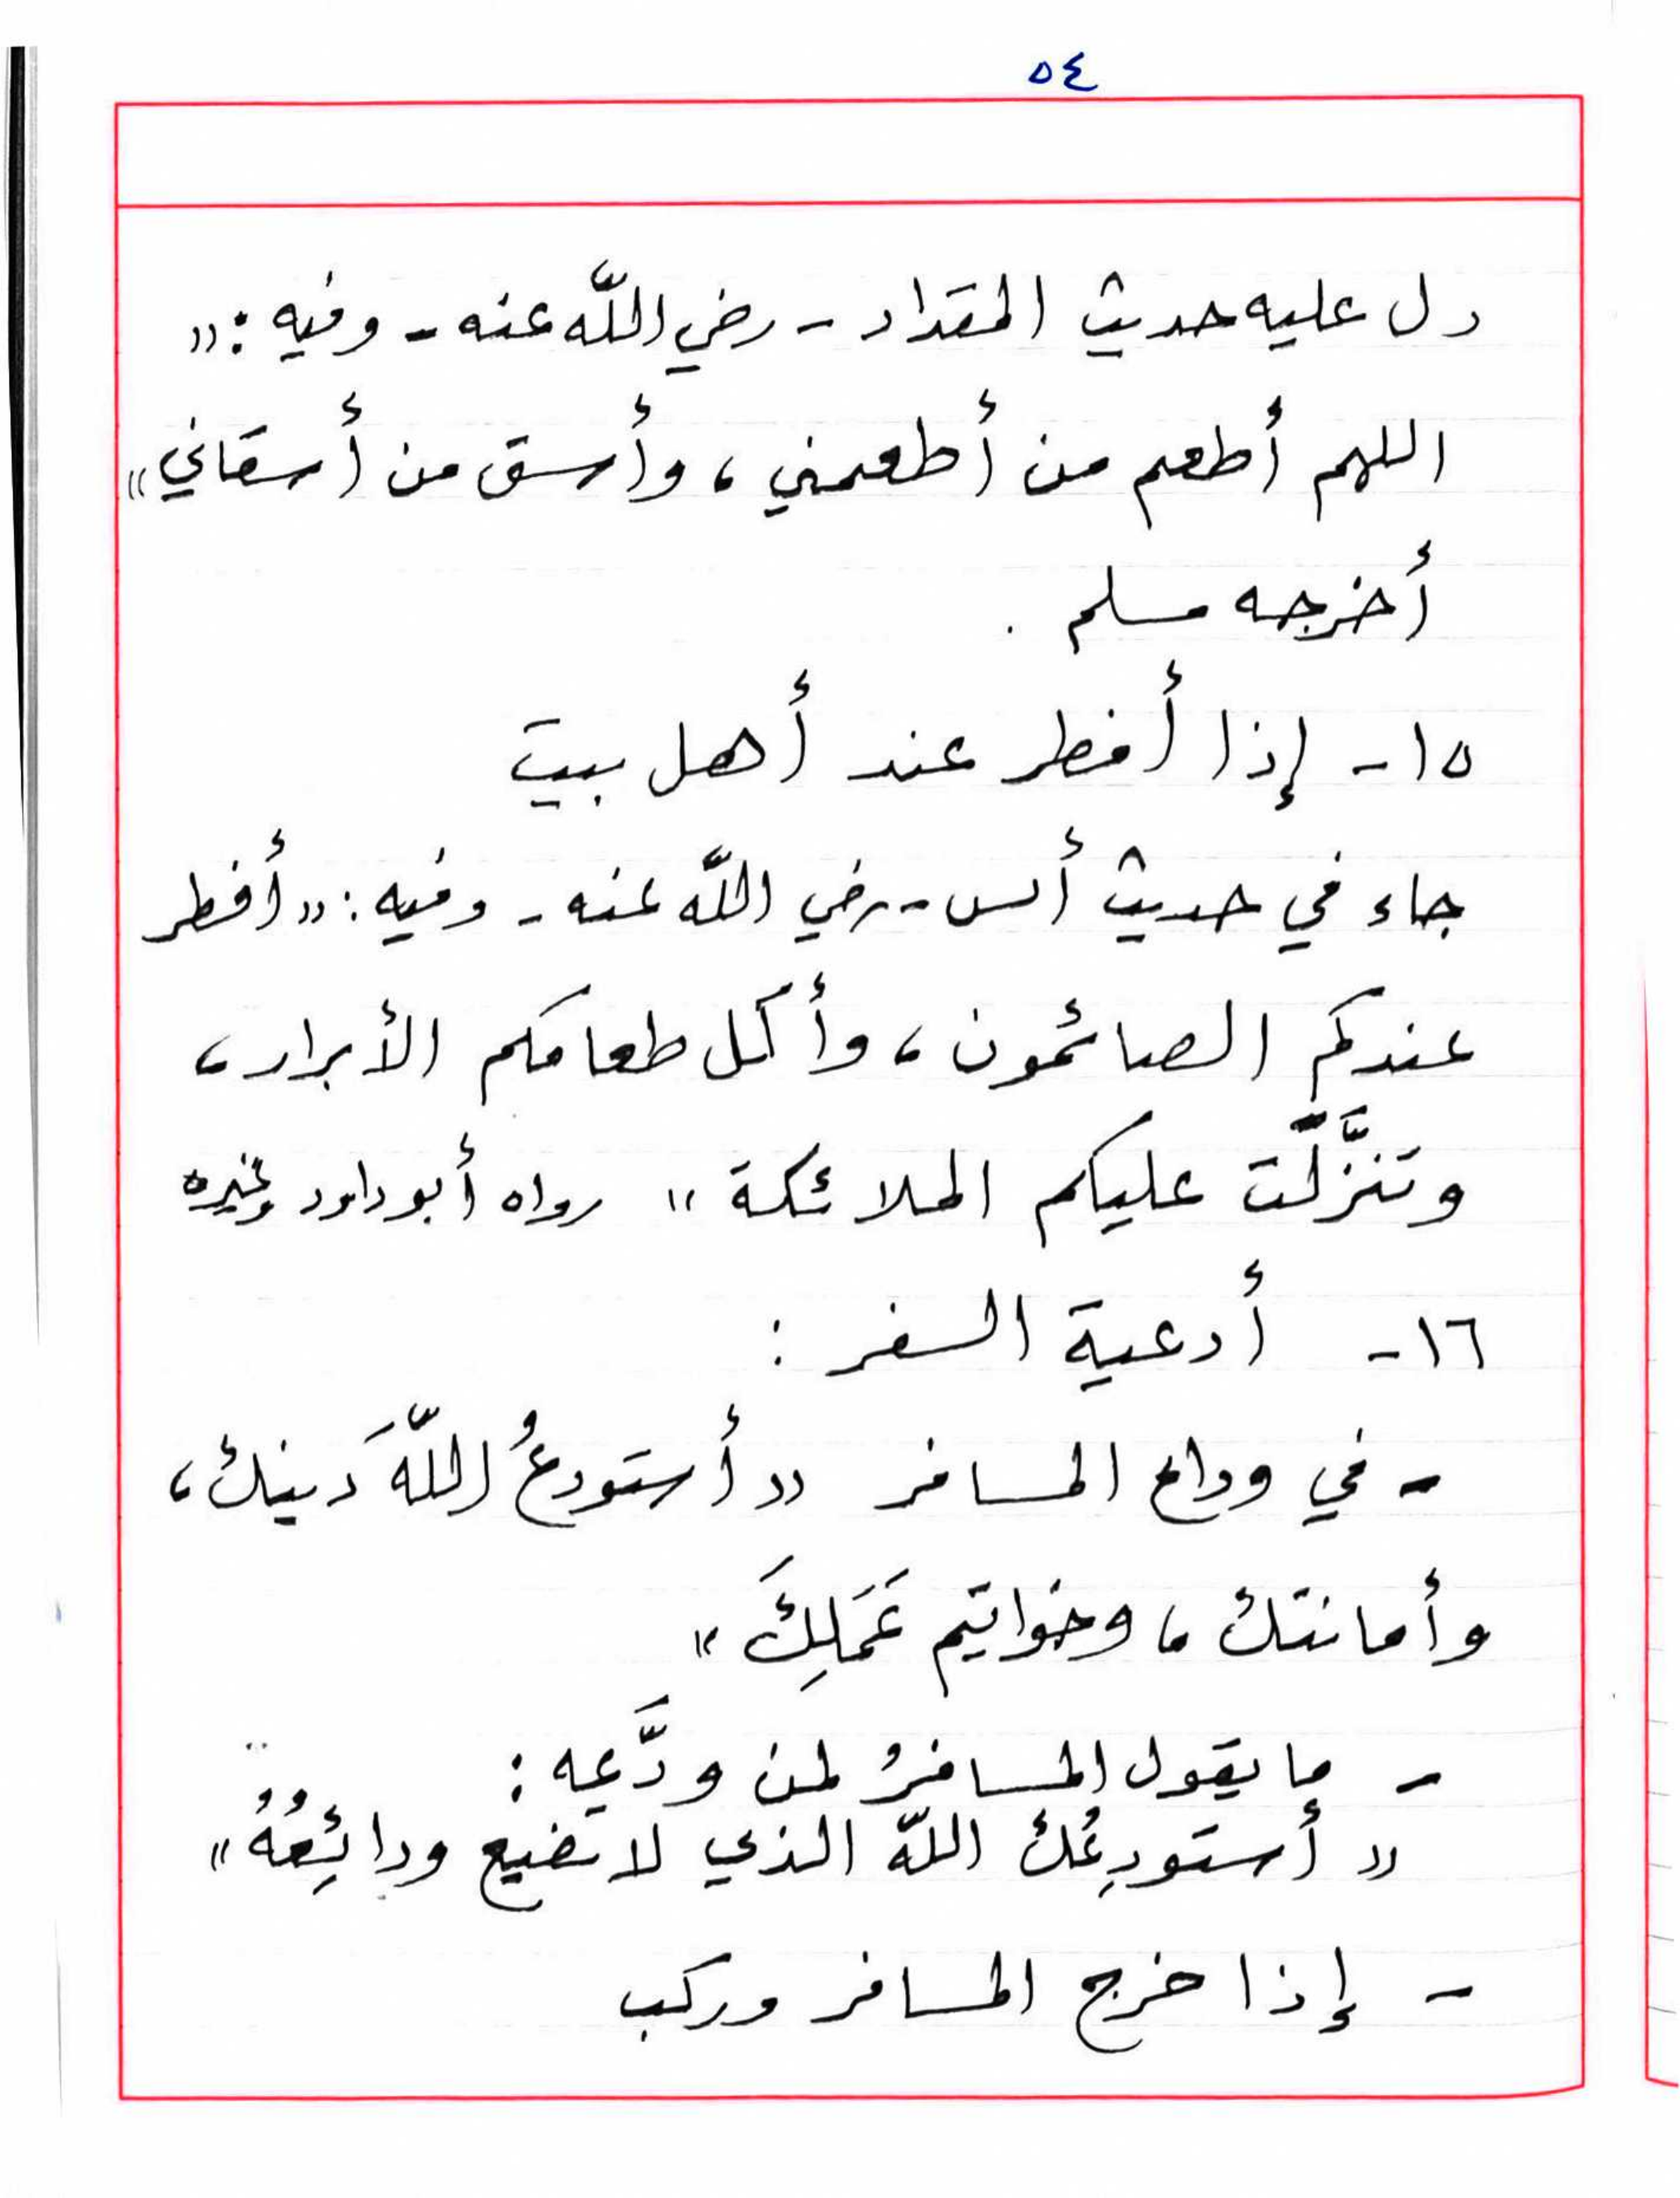 ٥٤
دل عليه حديث المقداد - رضي اللّه عنه - وفيه : «
اللهم أطعم من أطعمني ، وأسق من أسقاني »
أخرجه مسلم .
١٥- إذا أفطر عند أهل بيت
جاء في حديث أنس - رضي اللّه عنه - وفيه : « أفطر
عندكم الصائمون ، وأكل طعامكم الأبرار ،
وتنزَّلّت عليكم الملائكة » رواه أبو داود وغيره
١٦- أدعية السفر :
- في وداع المسافر « أستودعُ اللّهَ دينك ،
وأمانتك ، وخواتيم عَمَلِكَ »
- ما يقول المسافرُ لمن ودَّعه :
« أستودِعُك اللّه الذي لا تضيع ودائِعُهُ »
- إذا خرج المسافر وركب